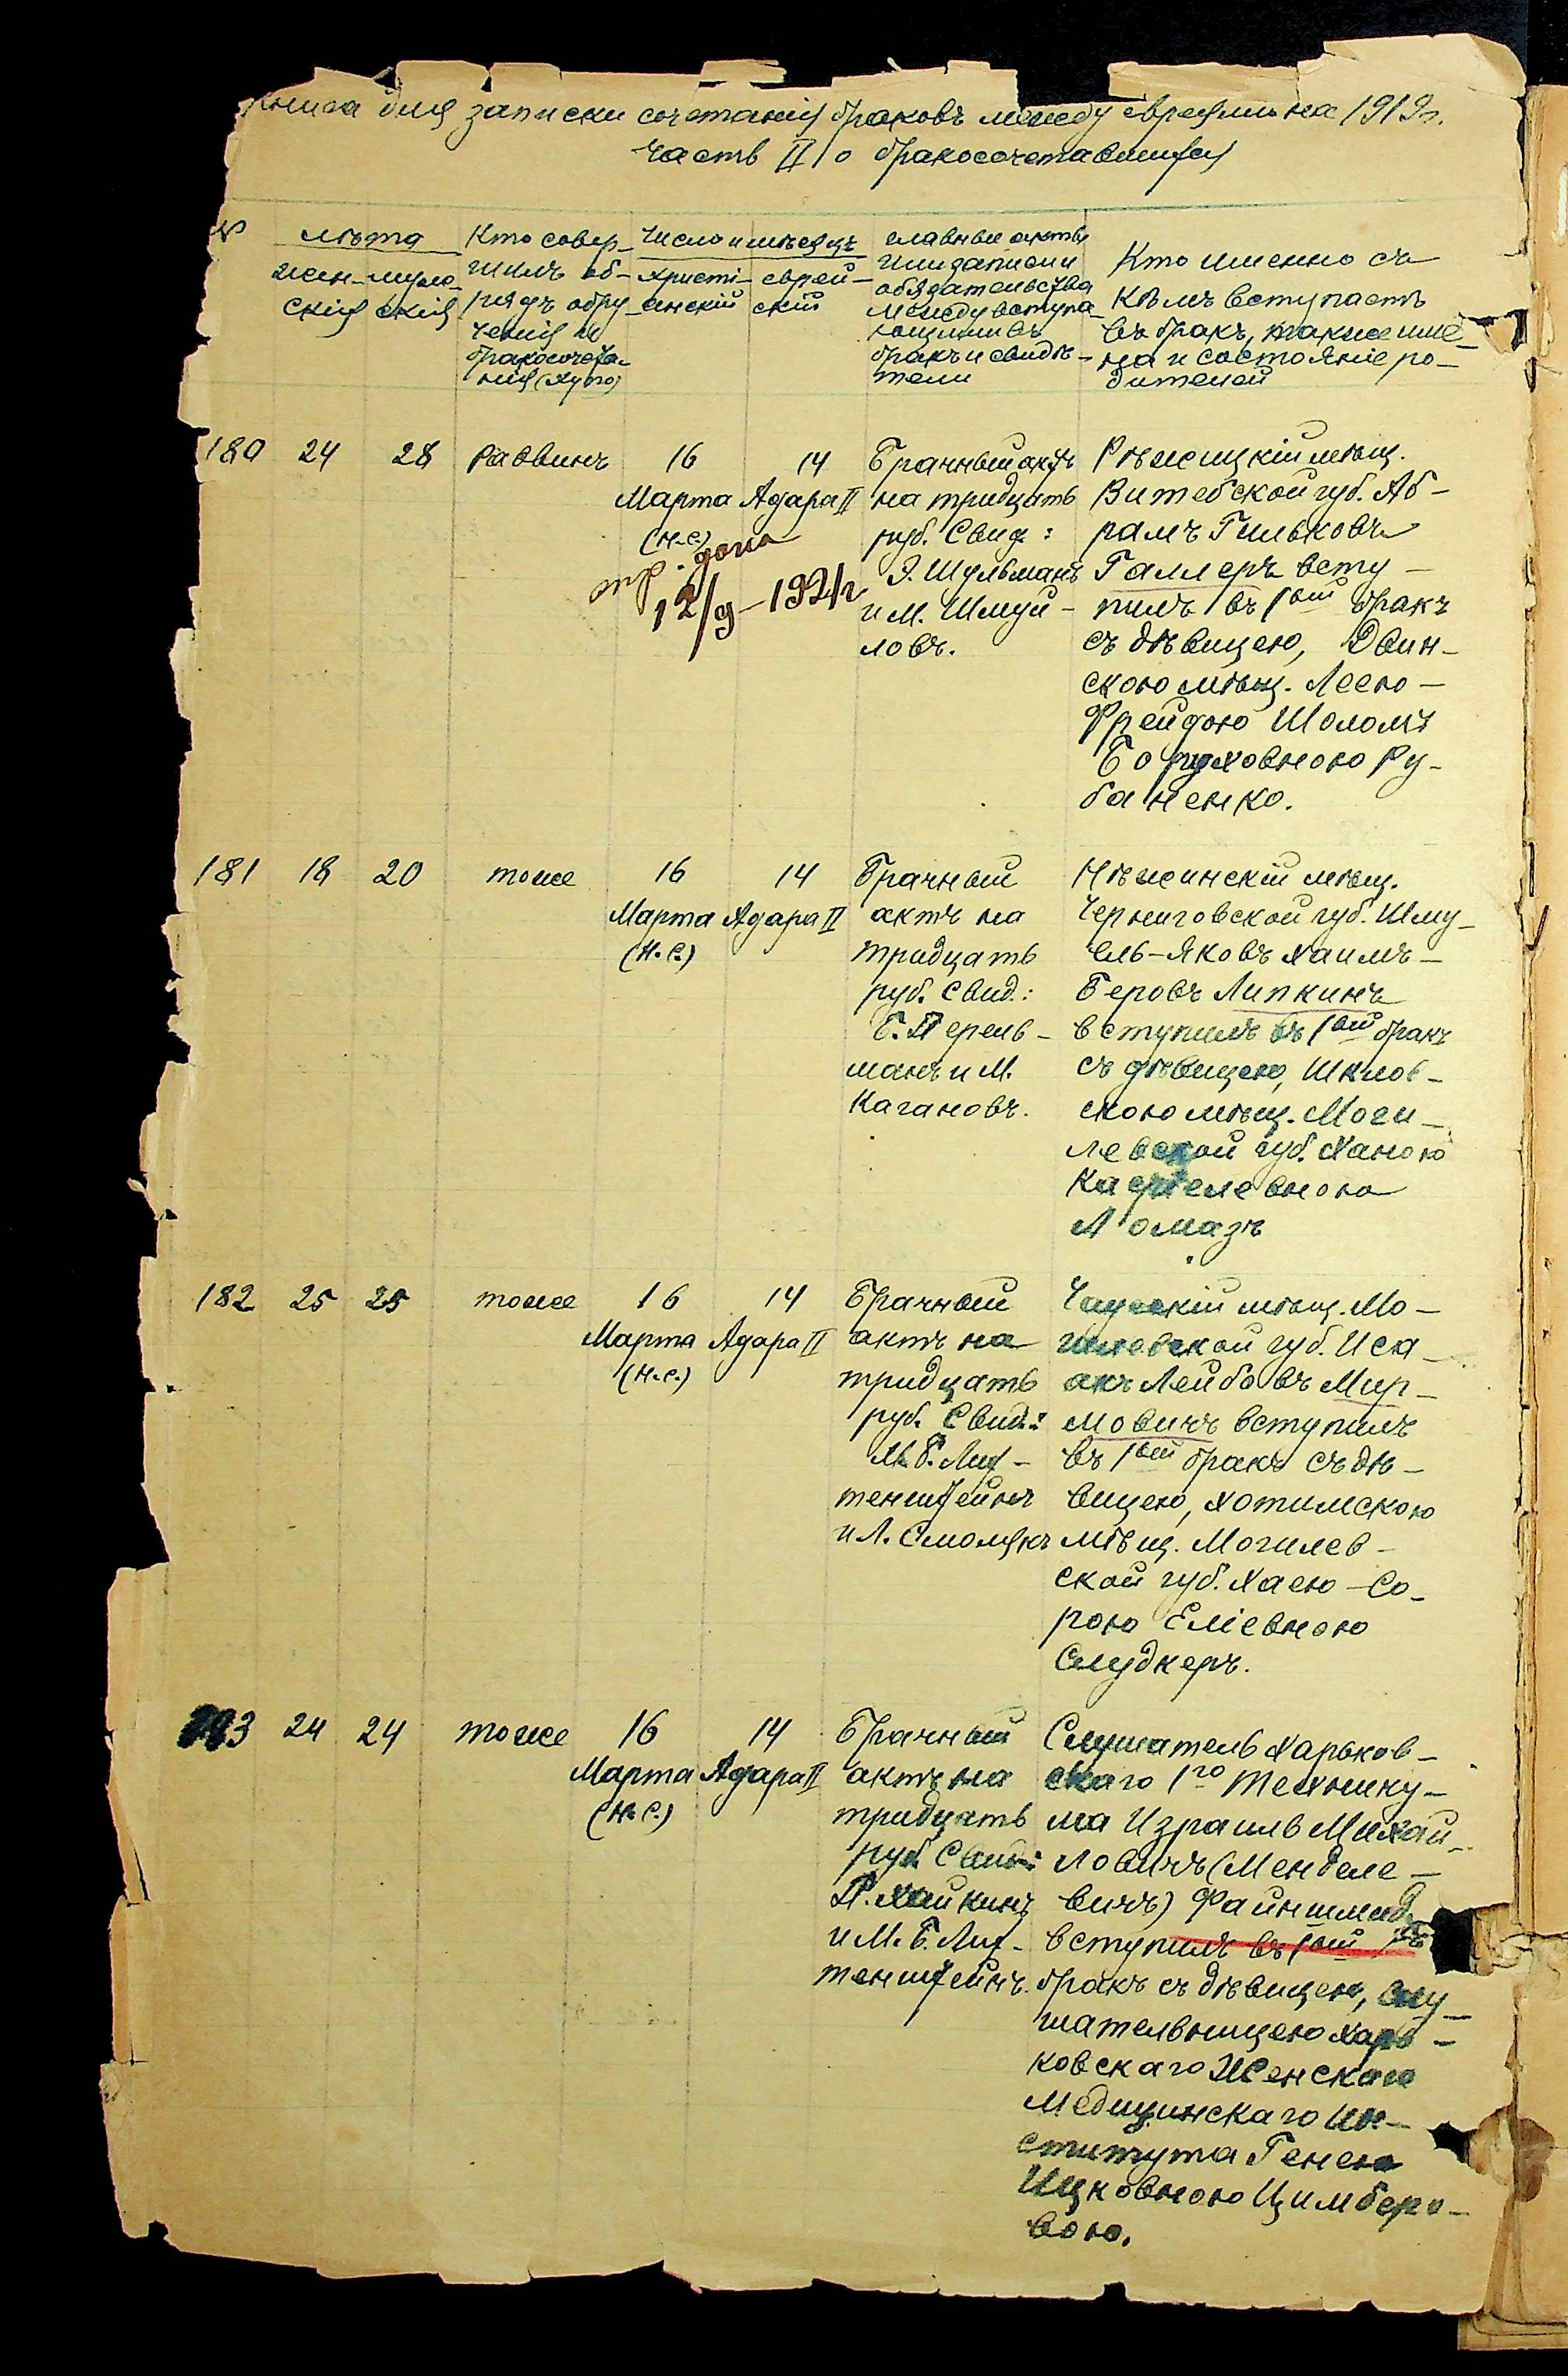 Книга для записки сочетанія браковъ между евреями на 1919 г.
Часть II о бракосочетавшихся
№
лѣта
жен- муж-
скія скія
Кто совер-
шилъ об-
рядъ обру-
ченія и
бракосочета-
нія (хупо)
Число и мѣсяцъ
христі- еврей-
анскій скій
главные акты
или записи и
обязательства
между вступа-
ющими въ
бракъ и свидѣ-
тели
Кто именно съ
кѣмъ вступаетъ
въ бракъ, также име-
на и состояніе ро-
дителей
180 24 28 Раввинъ
16
Марта
(н.с.)
14
Адара II
тр. дана
12/9-1921 г
Брачный актъ
на тридцать
руб. Свид:
Э. Шульманъ
и М. Шмуй-
ловъ.
Рѣжицкій мѣщ.
Витебской губ. Аб-
рамъ Гильковъ
Галлеръ всту-
пилъ въ 1ый бракъ
съ дѣвицею, Двин-
скою мѣщ. Леею-
Фрейдою Шоломъ
Боруховною Ру-
баненко.
181 18 20 тоже
16
Марта
(н.с.)
14
Адара II
Брачный
актъ на
тридцать
руб. Свид.:
Б. Перель-
манъ и М.
Кагановъ.
Нѣжинскій мѣщ.
Черниговской губ. Шму-
ель-Яковъ Хаимъ-
Беровъ Липкинъ
вступилъ въ 1ый бракъ
съ дѣвицею, Шклов-
скою мѣщ. Моги-
левской губ. Ханою
Ломазъ
182 25 25 тоже
16
Марта
(н.с.)
14
Адара II
Брачный
актъ на
тридцать
руб. Свид.:
М.Б. Лих-
тенштейнъ
и Л. Смольякъ
Чаусскій мѣщ. Мо-
гилевской губ. Иса-
акъ Лейбовъ Мир-
мовичъ вступилъ
въ 1ый бракъ съ дѣ-
вицею, Хотимскою
мѣщ. Могилев-
ской губ. Хаею-Со-
рою Еліевною
Слудкеръ.
183 24 24 тоже
16
Марта
(н.с.)
14
Адара II
Брачный
актъ на
тридцать
руб. Свид:
Хайкинъ
и М.Б. Лих-
тенштейнъ.
Слушатель Харьков-
скаго 1го Технику-
ма Израиль Михай-
ловичъ (Менделе-
вичъ) Файншмидтъ
вступилъ въ 1ый
бракъ съ дѣвицею, слу-
шательницею Харь-
ковскаго Женскаго
Медицинскаго Ин-
ститута Генею
Ицковною Цимберо-
вою.